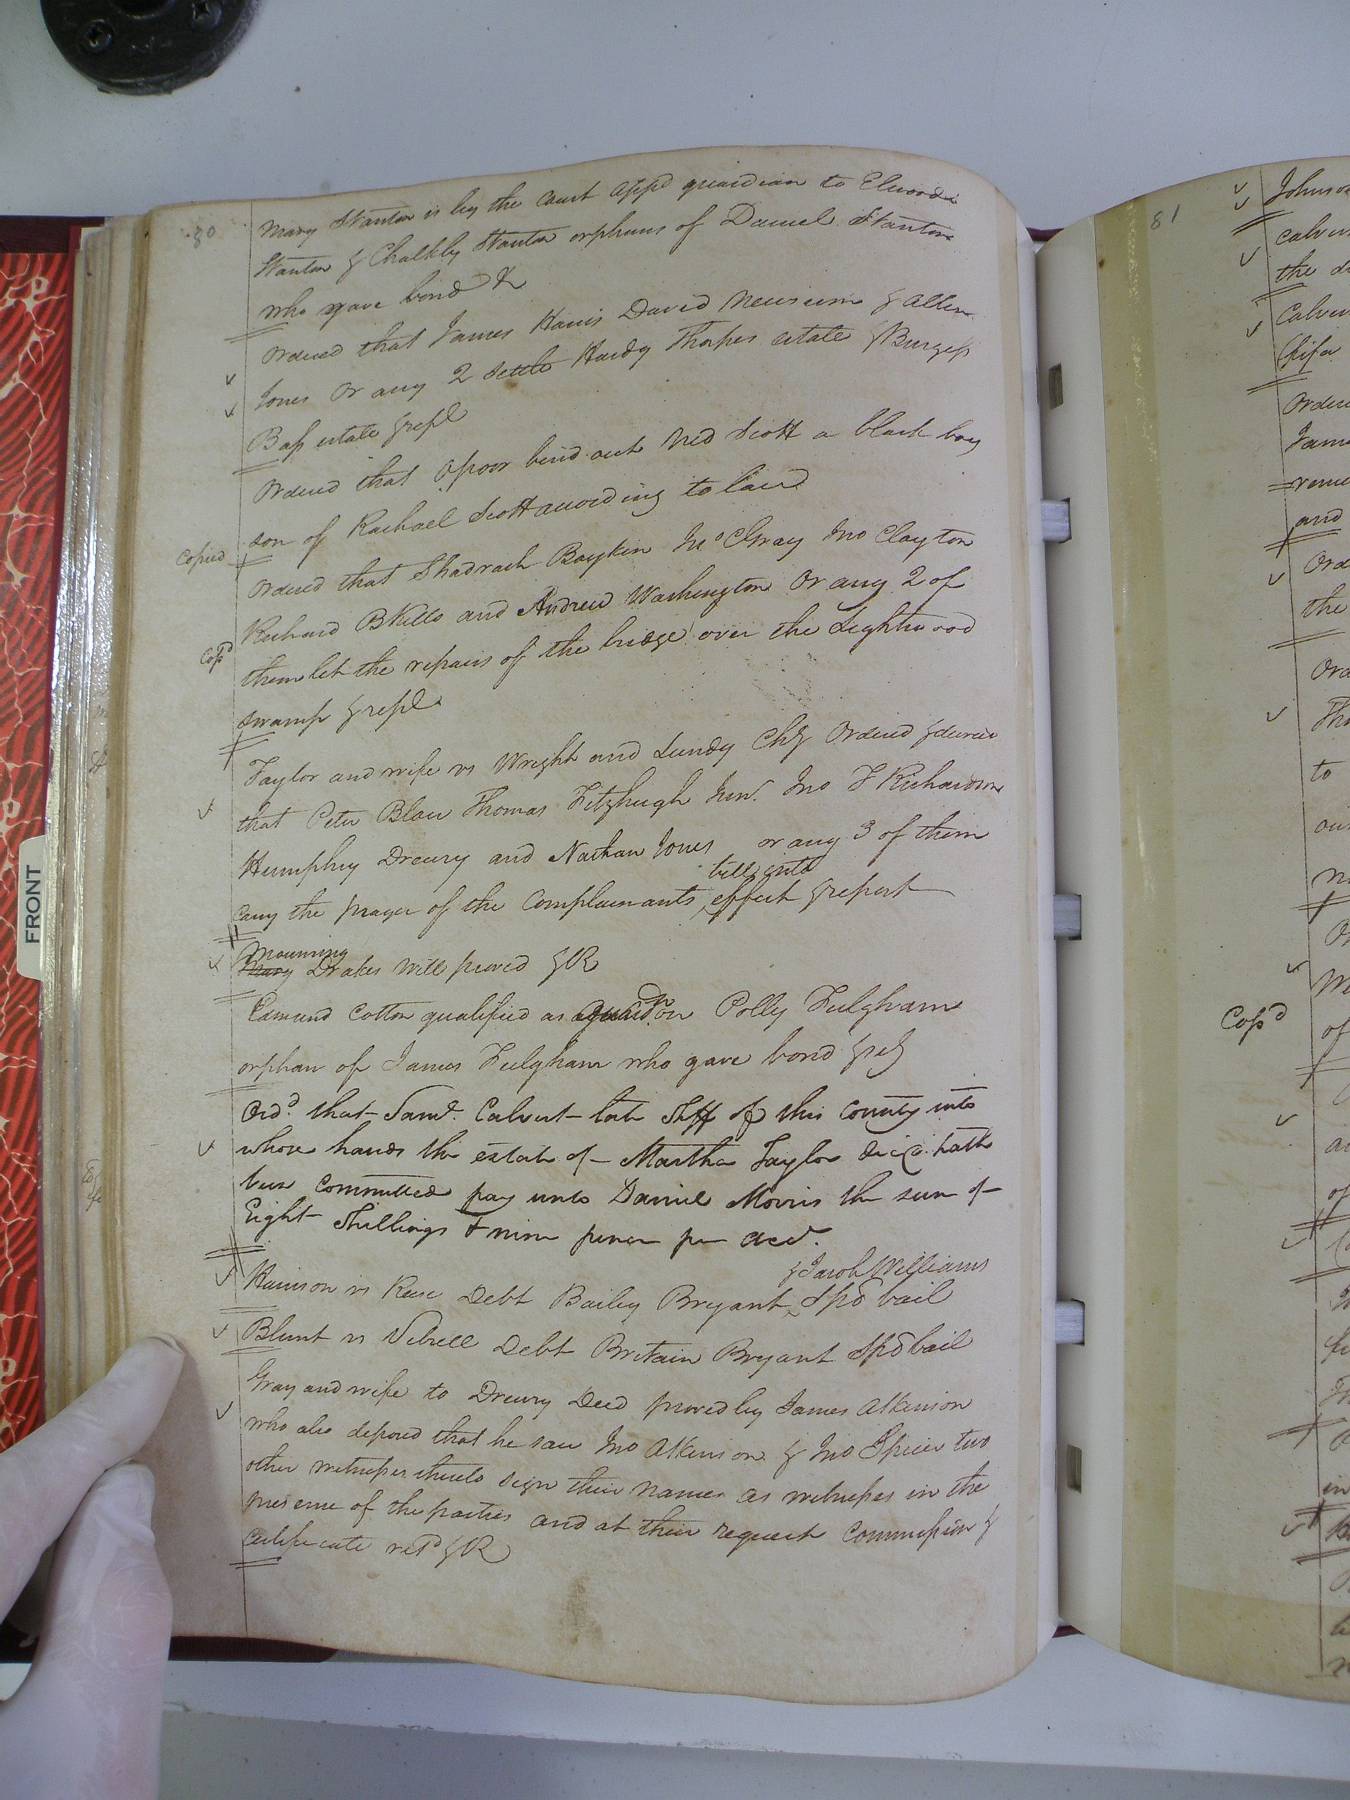 80
Mary Stanton is by the Court appd guardian to Elwood
Stanton & Chalkley Stanton orphans of Daniel Stanton
who gave bond &c
Ordered that James Harris David Newsum & Allen
Jones or any 2 settle Hardy Thorpes estate & Burgess
Bass estate & repl
Ordered that Opoor bind out Ned Scott a black boy
son of Rachael Scott according to law
Copied
Ordered that Shadrach Boykin Jno C Gray Jno Clayton
Richard B Kello and Andrew Washington or any 2 of
Copd
them let the repairs of the bridge over the Lightwood
swamp & repl
Taylor and wife vs Wright and Lundy Chy Ordered & decree
that Peter Blow Thomas Fitzhugh Jun. Jno F Richardson
Humphry Drewry and Nathan Jones or any 3 of them
bill into
carry the prayer of the Complainants effect & report
Mourning
Mary Drakes will proved & R
Edmund Cotton qualified as guard. on Polly Fulgham
orphan of James Fulgham who gave bond &
Ord. that Saml. Calvert late Shff of this County into
whose hands the estate of Martha Taylor decd. hath
been committed pay unto Daniel Morris the sum of
Eight Shillings & nine pence per acct.
& Jacob Williams
Harrison vs Rese Debt Bailey Bryant Spd bail
Blunt vs Vebrell Debt Britain Bryant Spd bail
Gray and wife to Drewry Deed proved by James Atkinson
who also deposed that he saw Jno Atkinson & Jno Spicer two
other witnesses thereto sign their names as witnesses in the
presence of the parties and at their request Commission &
certificate retd & R
81
Johnson
the
Jame
and
the
to
Copd
of
of